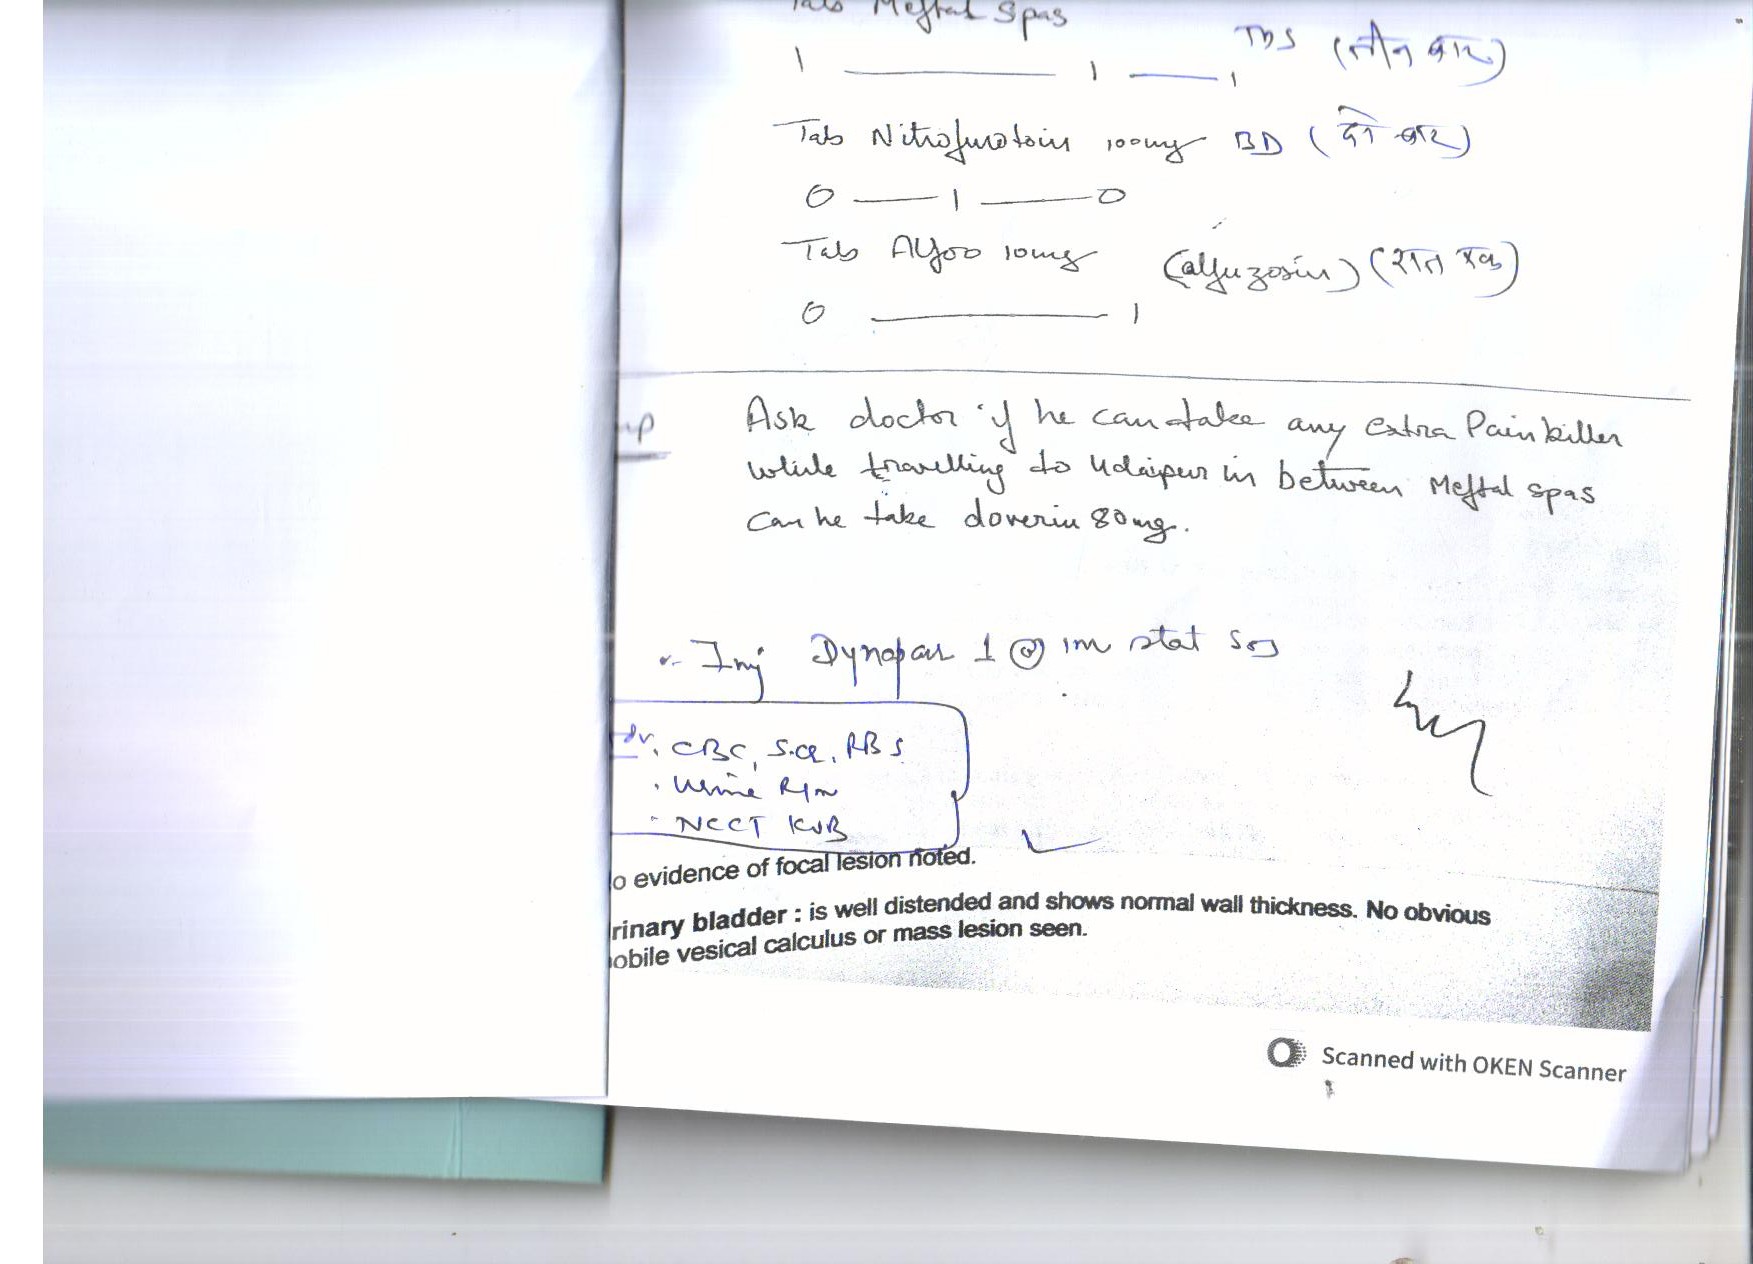 Tab Meftal Spas
1 — 1 — 1 TDS (तीन बार)
Tab Nitrofurotoin 100mg BD (दो बार)
0 — 1 — 0
Tab Alfoo 10mg (alfuzosin) (रात एक)
0 — 1
Ask doctor if he can take any extra Pain killer
while travelling to Udaipur in between Meftal spas
Can he take doverin 80mg.
Inj Dynapar 1 @ im stat SOS
CBC, S.Cr, RBS
Urine R/m
NCCT KUB
o evidence of focal lesion noted.
rinary bladder : is well distended and shows normal wall thickness. No obvious
obile vesical calculus or mass lesion seen.
Scanned with OKEN Scanner